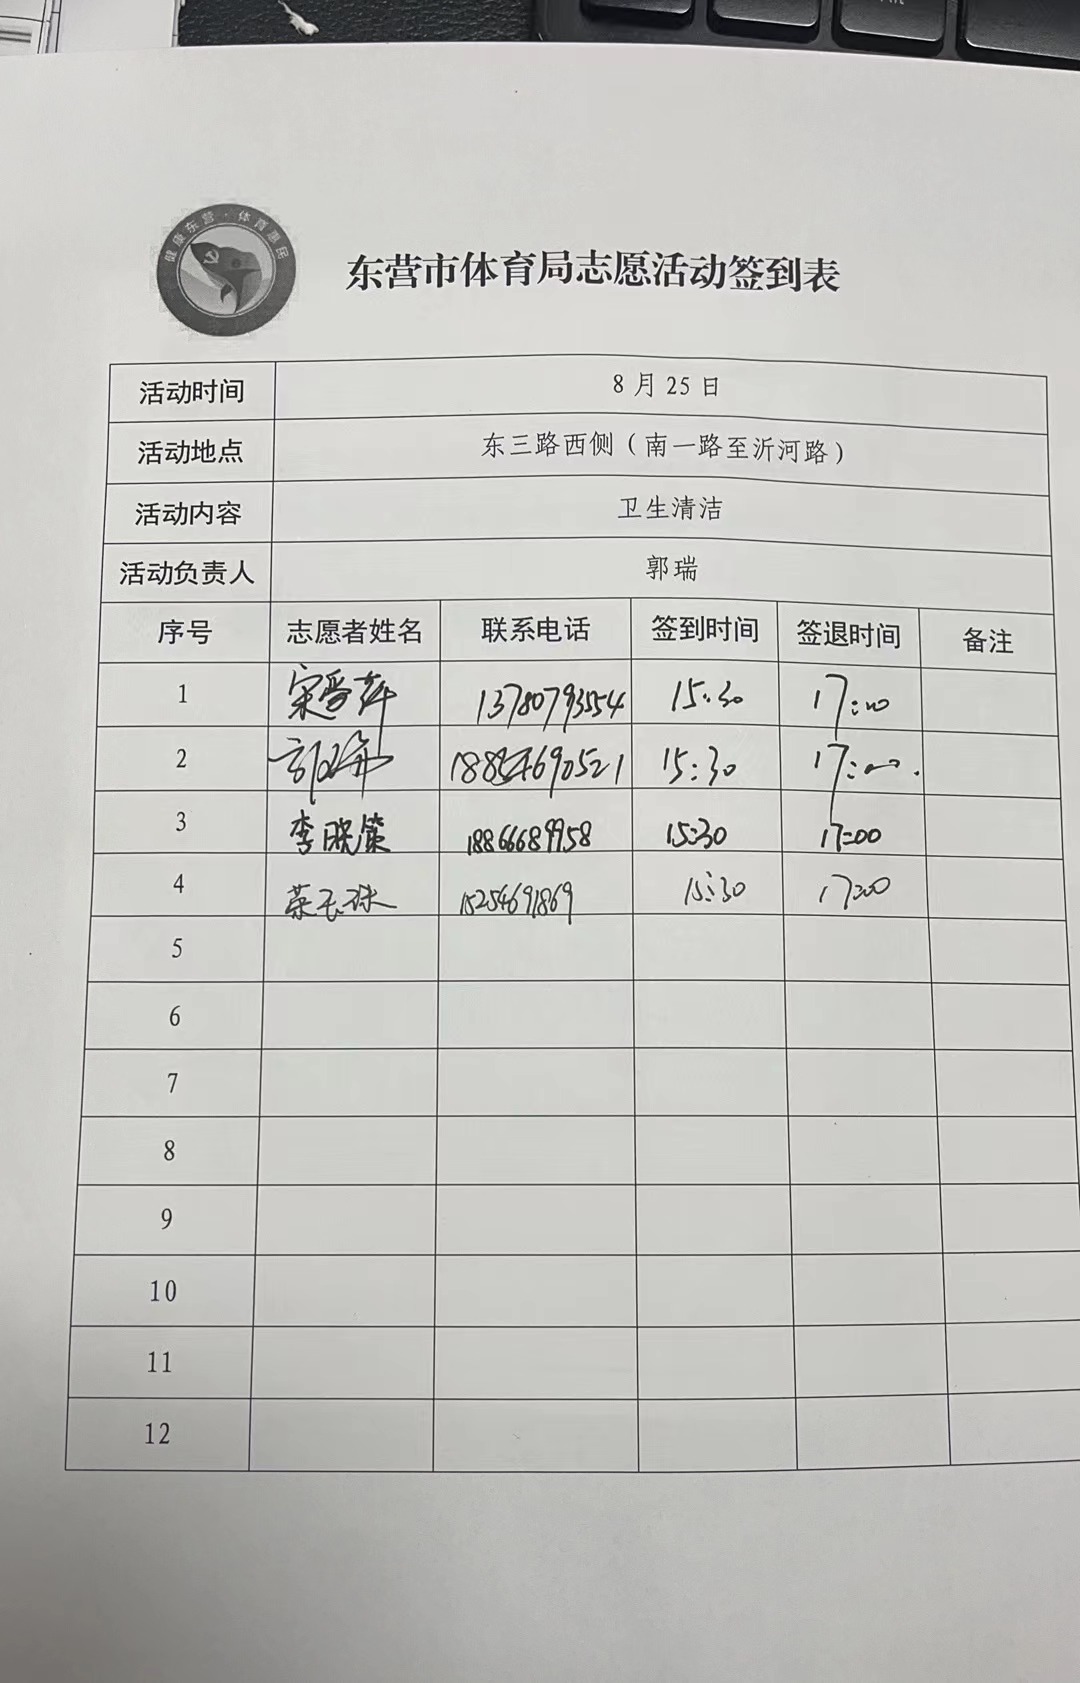 健康东营·体育惠民
东营市体育局志愿活动签到表
活动时间 8月25日
活动地点 东三路西侧（南一路至沂河路）
活动内容 卫生清洁
活动负责人 郭瑞
序号 志愿者姓名 联系电话 签到时间 签退时间 备注
1 13780793554 15:30 17:00
2 15:30 17:00
3 李晓策 18866689958 15:30 17:00
4 15254691869 15:30 17:00
5
6
7
8
9
10
11
12